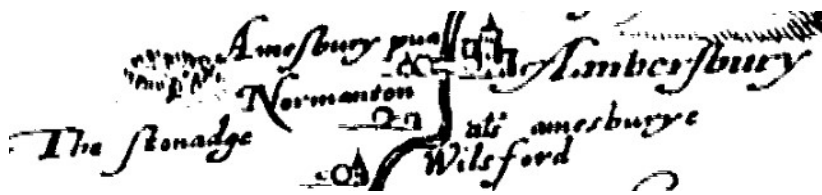 Amesbury pua
Ambersbury
Normanton
The stonadge
als amesburye
Wilsford